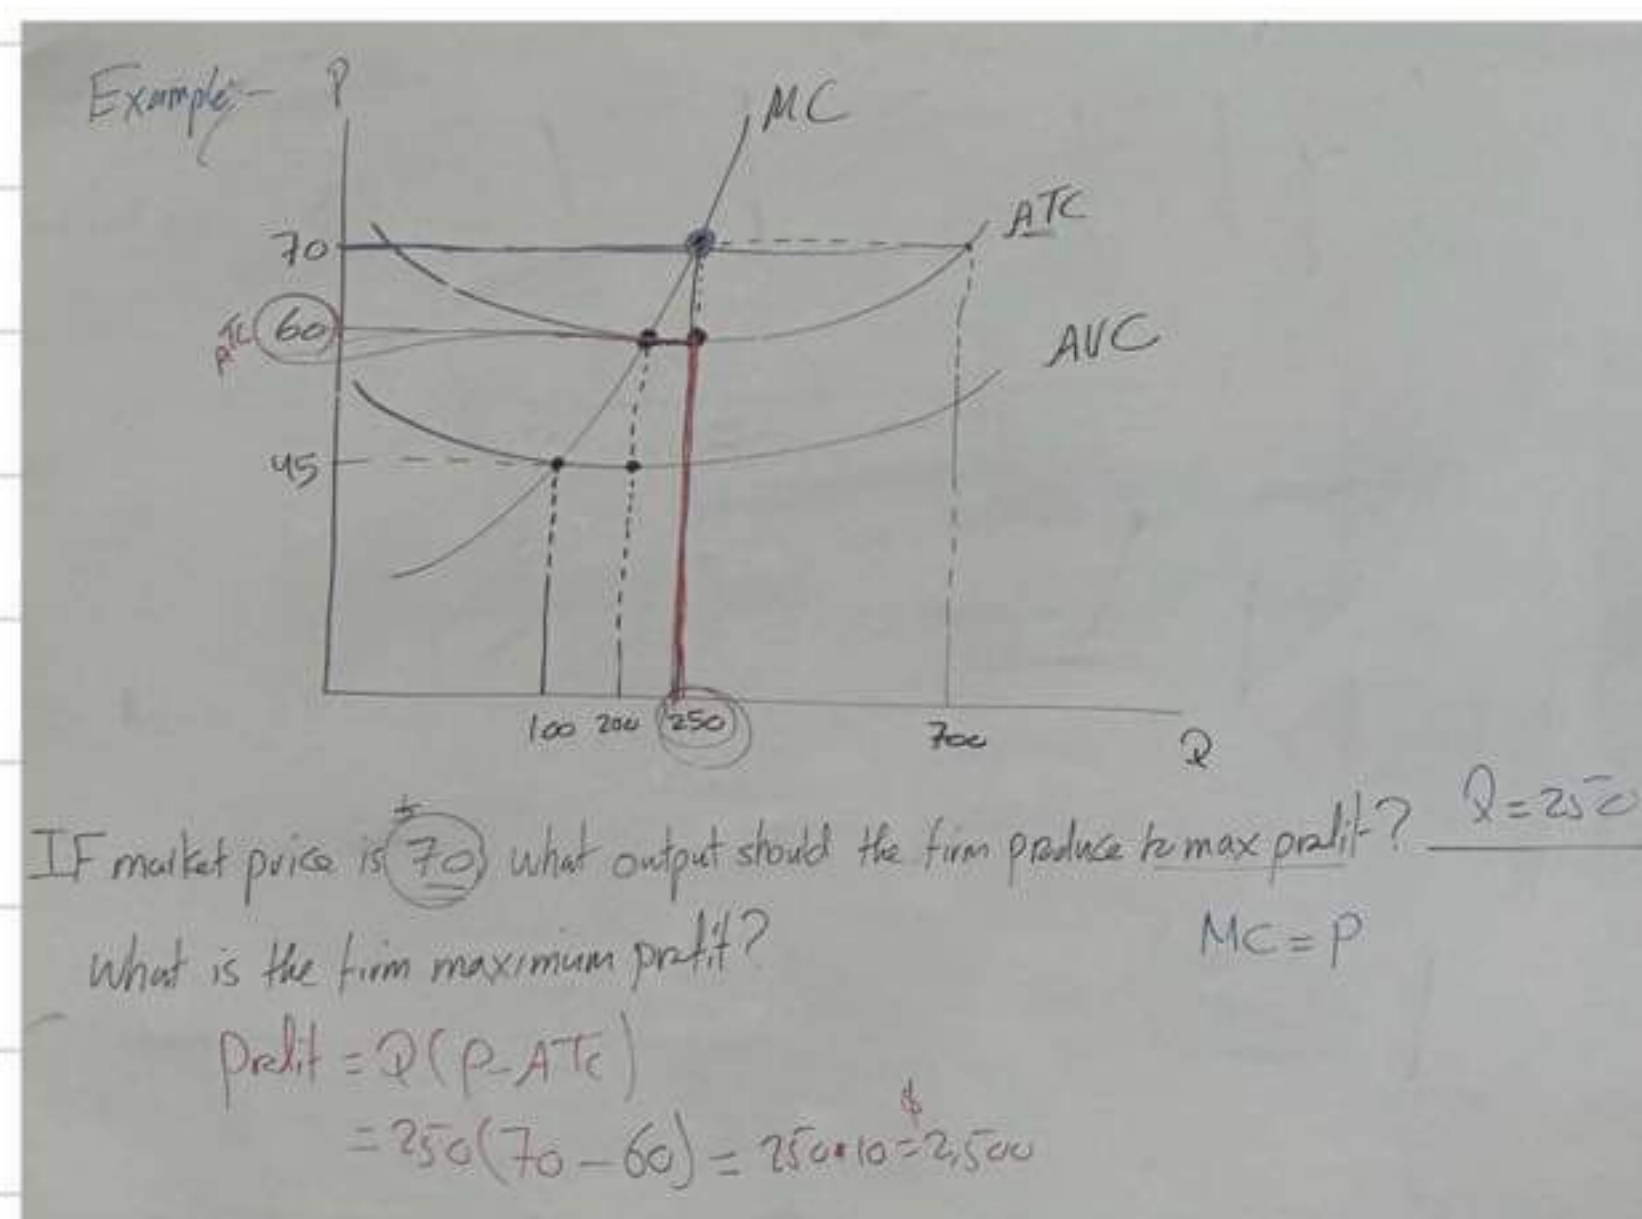 Example:-
P
MC
ATC
70
ATC 60
AVC
45
100 200 250 700
Q
IF market price is $70 what output should the firm produce to max profit? Q=250
what is the firm maximum profit? MC = P
Profit = Q(P-ATC)
= 250(70-60) = 250•10=$2,500